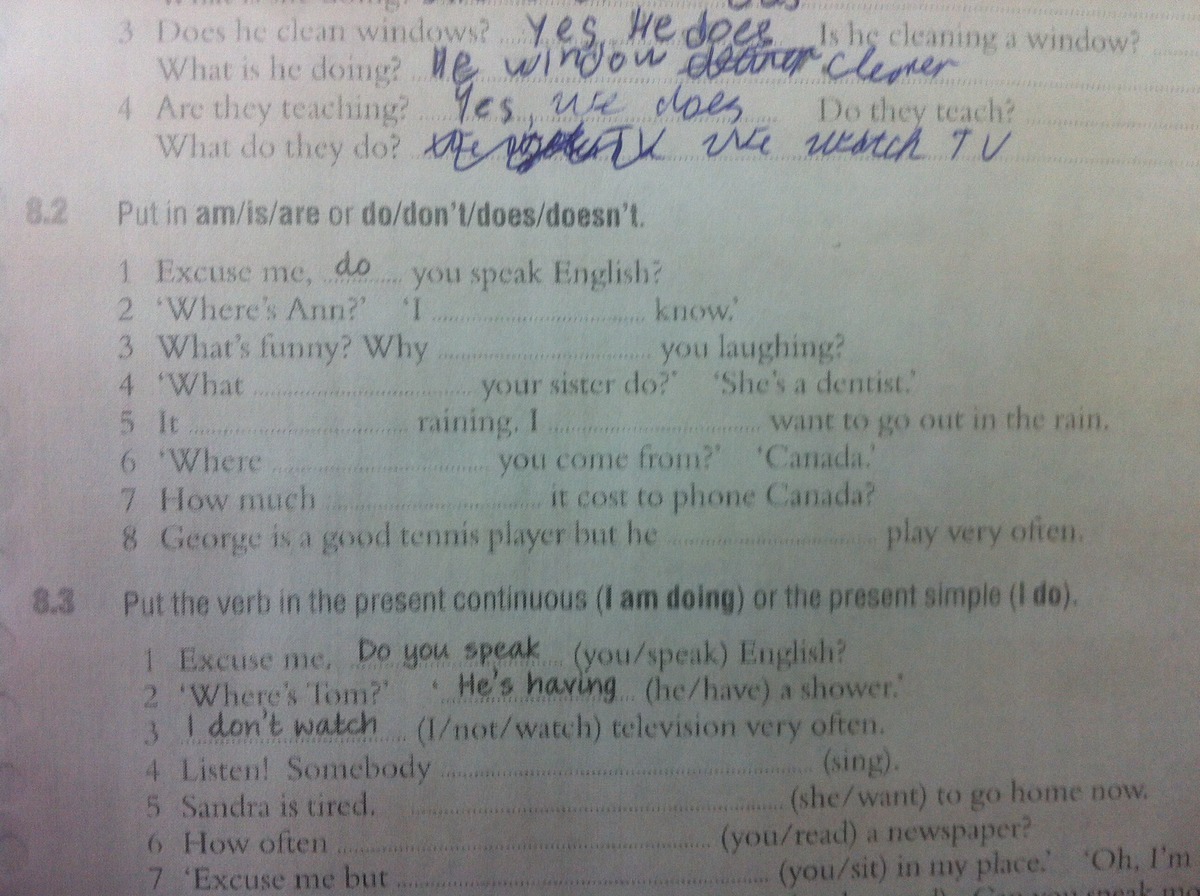 3 Does he clean windows? Yes, He does Is he cleaning a window?
What is he doing? He window cleaner
4 Are they teaching? Yes, we does Do they teach?
What do they do? We watch TV
8.2 Put in am/is/are or do/don't/does/doesn't.
1 Excuse me, do you speak English?
2 'Where's Ann?' 'I ........ know.'
3 What's funny? Why ........ you laughing?
4 'What ........ your sister do?' 'She's a dentist.'
5 It ........ raining. I ........ want to go out in the rain.
6 'Where ........ you come from?' 'Canada.'
7 How much ........ it cost to phone Canada?
8 George is a good tennis player but he ........ play very often.
8.3 Put the verb in the present continuous (I am doing) or the present simple (I do).
1 Excuse me, Do you speak (you/speak) English?
2 'Where's Tom?' 'He's having (he/have) a shower.'
3 I don't watch (I/not/watch) television very often.
4 Listen! Somebody ........ (sing).
5 Sandra is tired. ........ (she/want) to go home now.
6 How often ........ (you/read) a newspaper?
7 'Excuse me but ........ (you/sit) in my place.' 'Oh, I'm